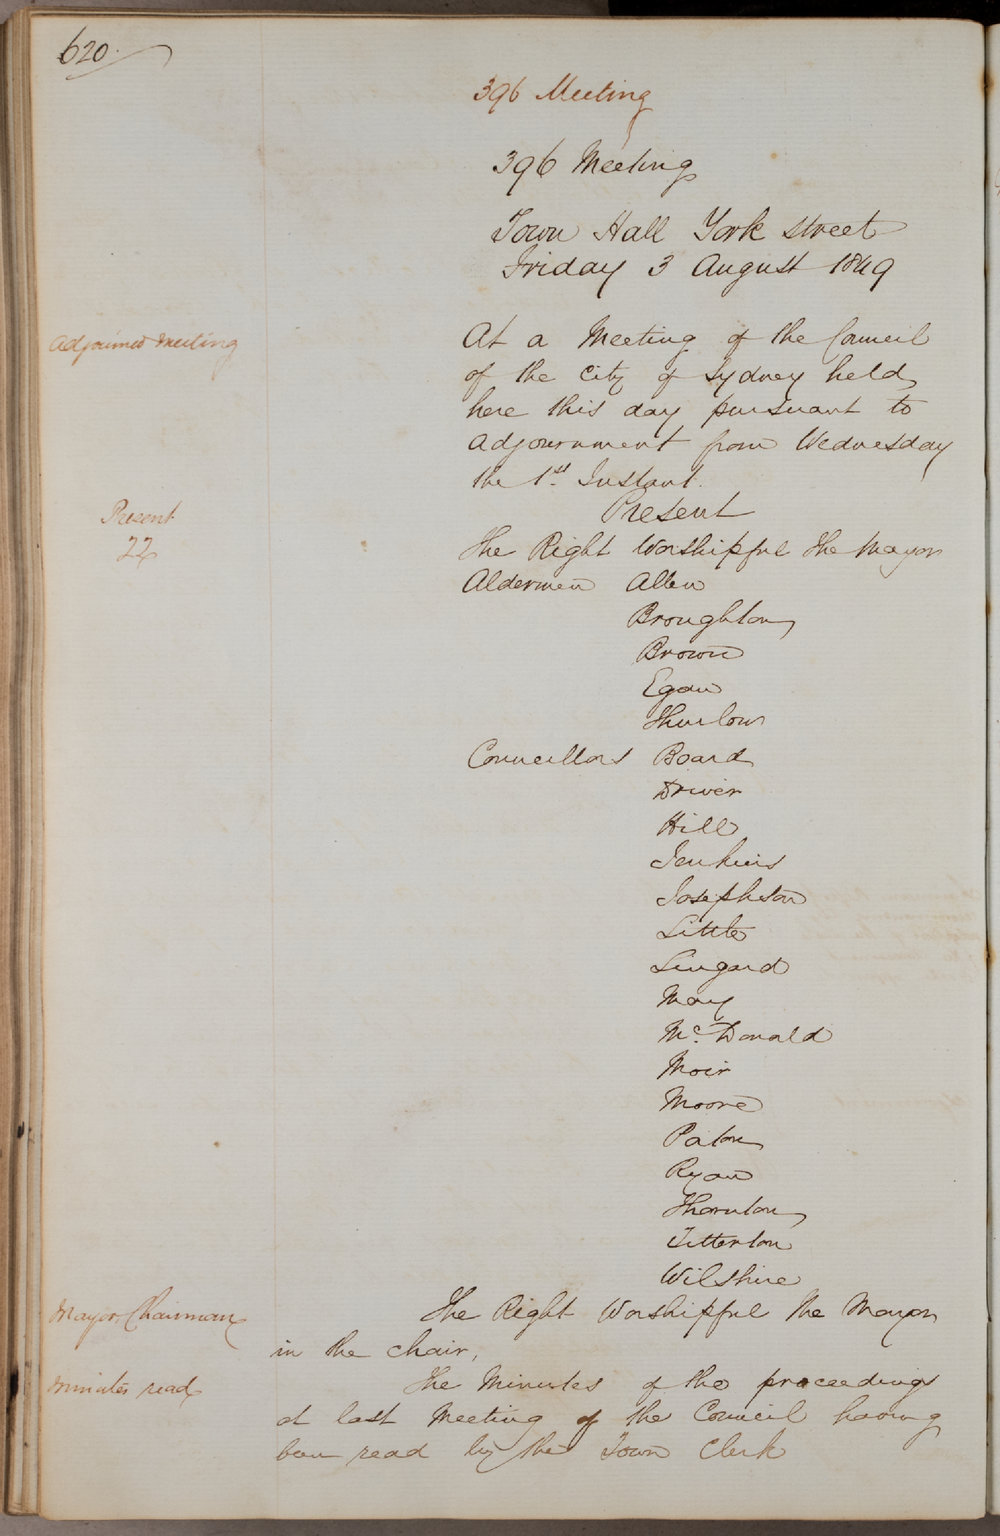 620.
396 Meeting
396 Meeting
Town Hall York street
Friday 3 August 1849
Adjourned Meeting
At a Meeting of the Council
of the City of Sydney held
here this day pursuant to
adjournment from Wednesday
the 1st. Instant.
Present
Present
22
The Right Worshipful the Mayor
Aldermen Allen
Broughton
Brown
Egan
Thurlow
Councillors Board
Driver
Hill
Jenkins
Josephson
Little
Lingard
May
Mc. Donald
Moir
Moore
Paton
Ryan
Thornton
Titterton
Wilshire
Mayor Chairman
The Right Worshipful the Mayor
in the chair,
Minutes read
The Minutes of the proceedings
at last Meeting of the Council having
been read by the Town Clerk